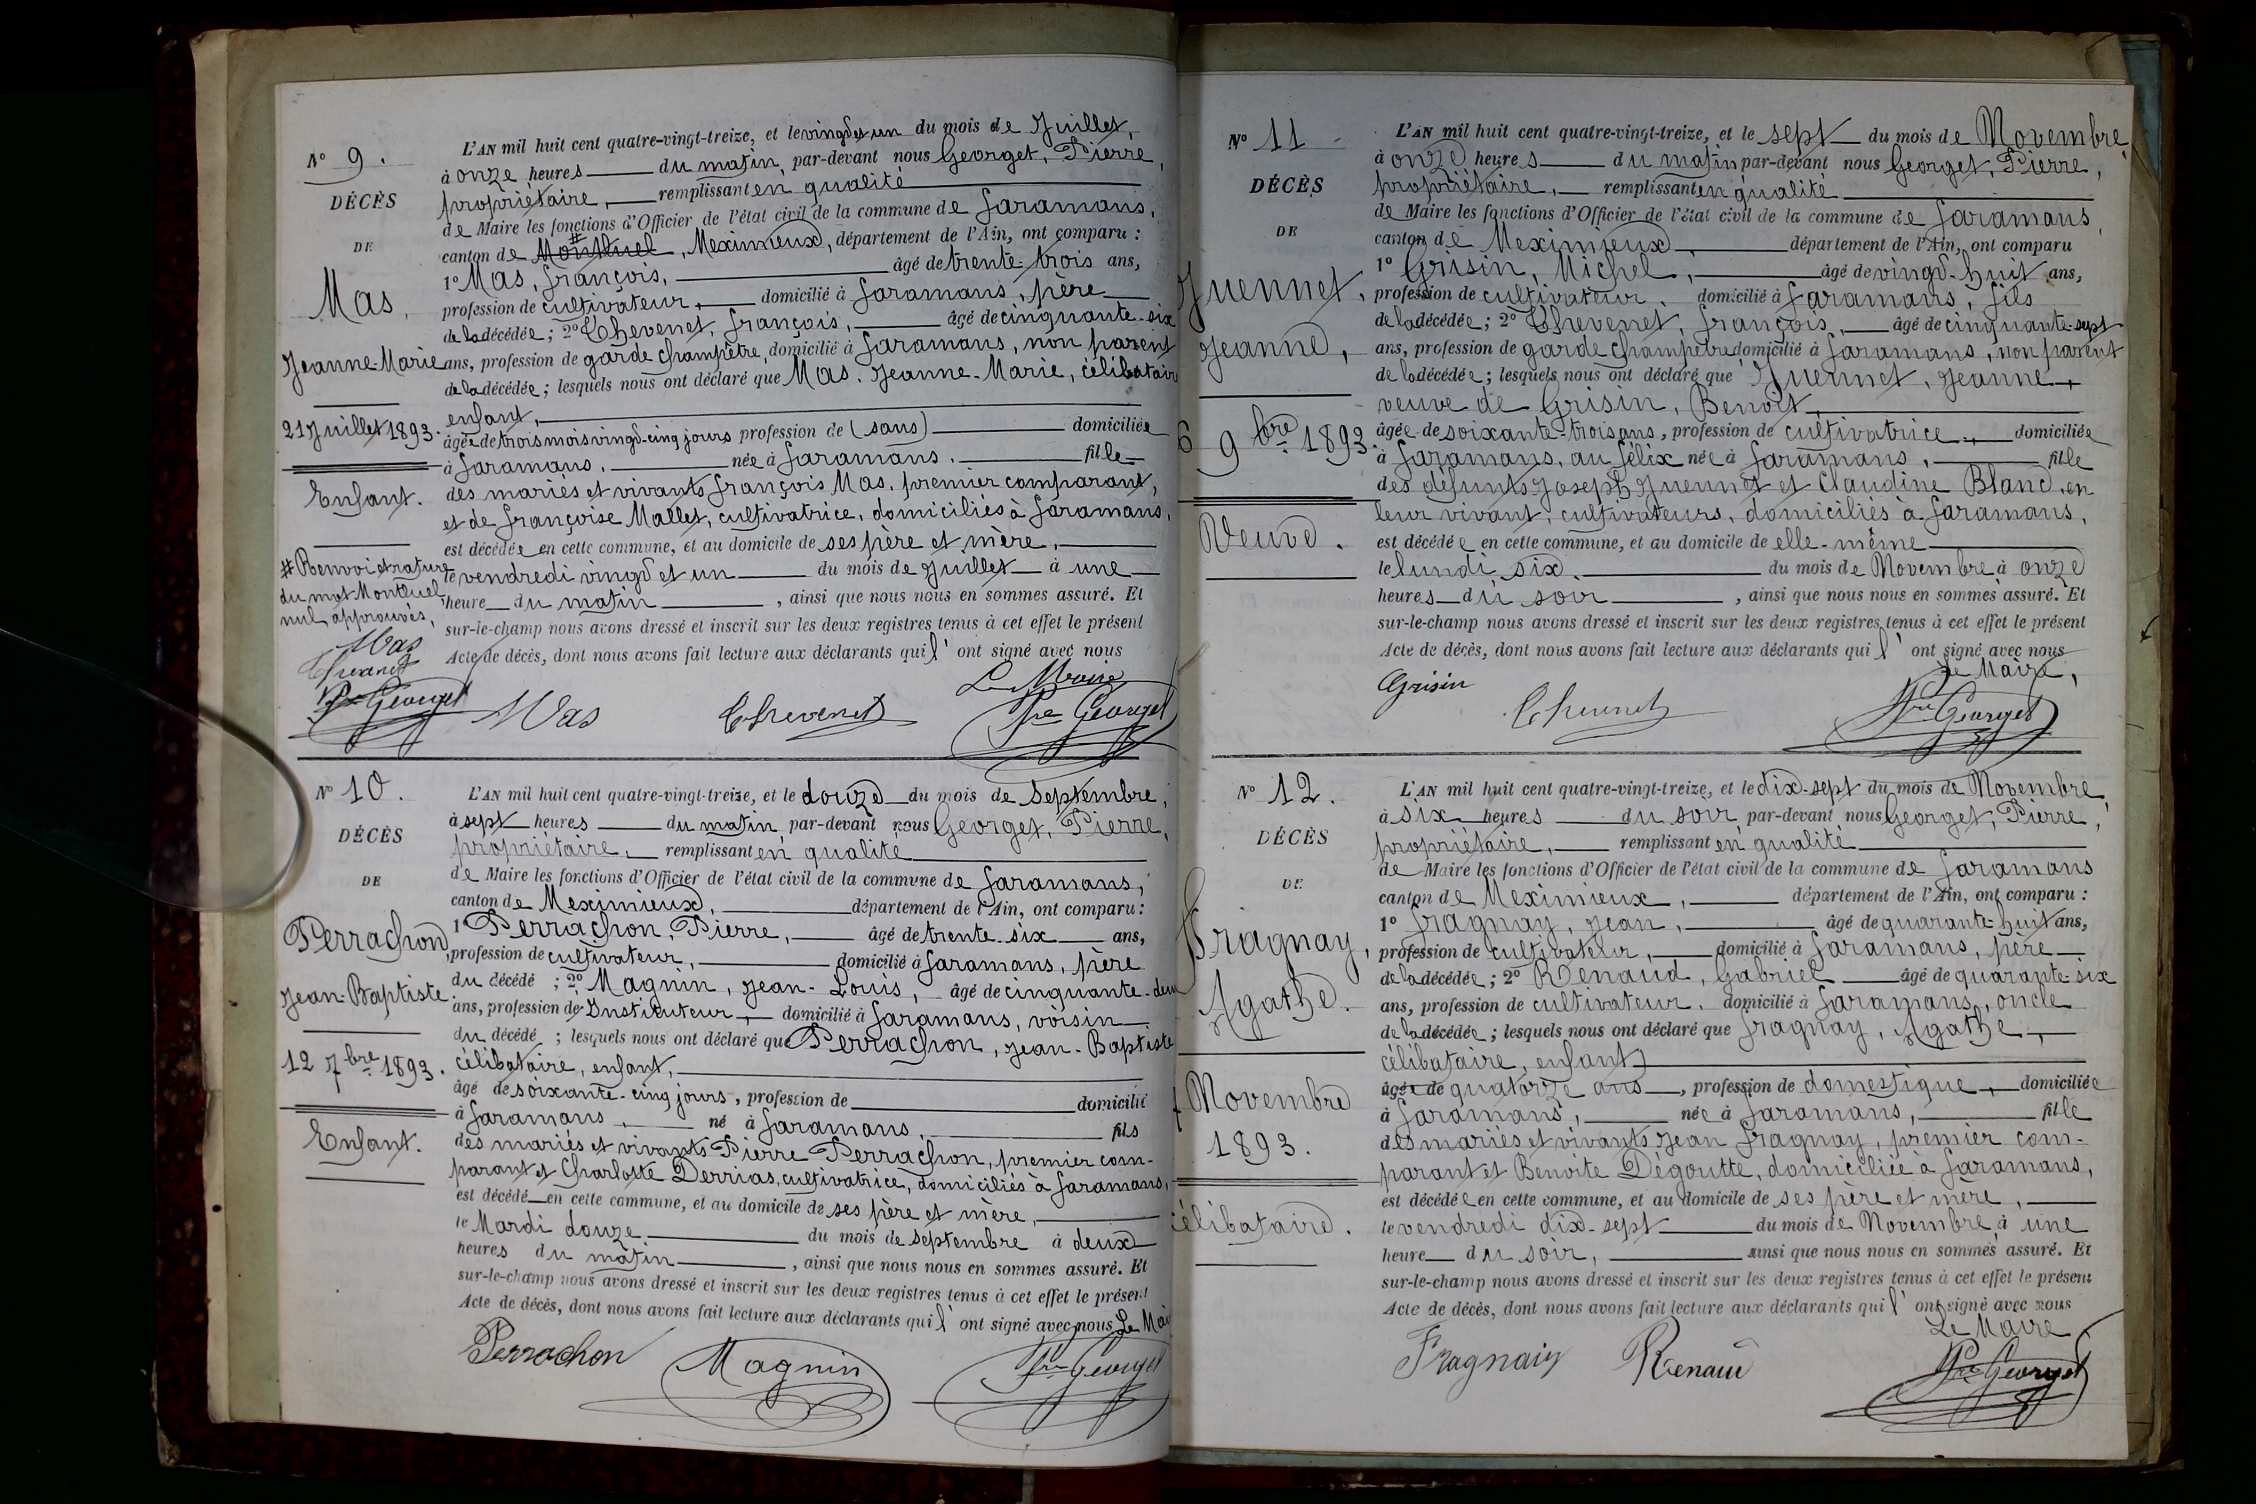 N° 9.
DÉCÈS
DE
Mas,
Jeanne-Marie
21 Juillet 1893.
Enfant.
# Renvoi et rature
du mot Montluel
nul approuvés,
Mas
Thevenet
Pre Georget
L'AN mil huit cent quatre-vingt-treize, et le vingt et un du mois de Juillet,
à onze heures du matin, par-devant nous Georget, Pierre,
propriétaire, remplissant en qualité
de Maire les fonctions d'Officier de l'état civil de la commune de Faramans,
canton de Montluel #, Meximieux, département de l'Ain, ont comparu :
1° Mas, François, âgé de trente-trois ans,
profession de cultivateur, domicilié à Faramans, père
de la décédée ; 2° Thevenet, François, âgé de cinquante-six
ans, profession de garde champêtre, domicilié à Faramans, non parent
de la décédée ; lesquels nous ont déclaré que Mas, Jeanne-Marie, célibataire
enfant,
âgée de trois mois vingt-cinq jours profession de (sans) domiciliée
à Faramans, née à Faramans, fille
des mariés et vivants François Mas, premier comparant,
et de Françoise Mallet, cultivatrice, domiciliés à Faramans,
est décédée en cette commune, et au domicile de ses père et mère,
le vendredi vingt et un du mois de Juillet à une
heure du matin, ainsi que nous nous en sommes assuré. Et
sur-le-champ nous avons dressé et inscrit sur les deux registres tenus à cet effet le présent
Acte de décès, dont nous avons fait lecture aux déclarants qui l'ont signé avec nous
Le Maire
Mas Thevenet Pre Georget
N° 10.
DÉCÈS
DE
Perrachon,
Jean-Baptiste
12 7bre 1893.
Enfant.
L'AN mil huit cent quatre-vingt-treize, et le douze du mois de Septembre,
à sept heures du matin, par-devant nous Georget, Pierre,
propriétaire, remplissant en qualité
de Maire les fonctions d'Officier de l'état civil de la commune de Faramans,
canton de Meximieux, département de l'Ain, ont comparu :
1° Perrachon, Pierre, âgé de trente-six ans,
profession de cultivateur, domicilié à Faramans, père
du décédé ; 2° Magnin, Jean-Louis, âgé de cinquante-deux
ans, profession de Instituteur, domicilié à Faramans, voisin
du décédé ; lesquels nous ont déclaré que Perrachon, Jean-Baptiste
célibataire, enfant,
âgé de soixante-cinq jours, profession de domicilié
à Faramans, né à Faramans, fils
des mariés et vivants Pierre Perrachon, premier com-
parant et Charlotte Derrias, cultivatrice, domiciliés à Faramans,
est décédé en cette commune, et au domicile de ses père et mère,
le Mardi douze du mois de septembre à deux
heures du matin, ainsi que nous nous en sommes assuré. Et
sur-le-champ nous avons dressé et inscrit sur les deux registres tenus à cet effet le présent
Acte de décès, dont nous avons fait lecture aux déclarants qui l'ont signé avec nous Le Mai
Perrachon Magnin Pre Georget
N° 11
DÉCÈS
DE
Juennet,
Jeanne,
6 9bre 1893.
Veuve.
L'AN mil huit cent quatre-vingt-treize, et le sept du mois de Novembre,
à onze heures du matin par-devant nous Georget, Pierre,
propriétaire, remplissant en qualité
de Maire les fonctions d'Officier de l'état civil de la commune de Faramans,
canton de Meximieux, département de l'Ain, ont comparu
1° Grisin, Michel, âgé de vingt-huit ans,
profession de cultivateur, domicilié à Faramans, fils
de la décédée ; 2° Thevenet, François, âgé de cinquante-sept
ans, profession de garde champêtre domicilié à Faramans, non parent
de la décédée ; lesquels nous ont déclaré que Juennet, Jeanne,
veuve de Grisin, Benoît,
âgée de soixante-trois ans, profession de cultivatrice, domiciliée
à Faramans, au Félix née à Faramans, fille
des défunts Joseph Juennet et Claudine Bland, en
leur vivant, cultivateurs, domiciliés à Faramans,
est décédée en cette commune, et au domicile de elle-même
le lundi six, du mois de Novembre à onze
heures du soir, ainsi que nous nous en sommes assuré. Et
sur-le-champ nous avons dressé et inscrit sur les deux registres tenus à cet effet le présent
Acte de décès, dont nous avons fait lecture aux déclarants qui l'ont signé avec nous
Le Maire,
Grisin Thevenet Pre Georget
N° 12.
DÉCÈS
DE
Fragnay,
Agathe.
7 Novembre
1893.
célibataire.
L'AN mil huit cent quatre-vingt-treize, et le dix-sept du mois de Novembre,
à six heures du soir, par-devant nous Georget, Pierre,
propriétaire, remplissant en qualité
de Maire les fonctions d'Officier de l'état civil de la commune de Faramans
canton de Meximieux, département de l'Ain, ont comparu :
1° Fragnay, Jean, âgé de quarante-huit ans,
profession de cultivateur, domicilié à Faramans, père
de la décédée ; 2° Renaud, Gabriel âgé de quarante-six
ans, profession de cultivateur, domicilié à Faramans, oncle
de la décédée ; lesquels nous ont déclaré que Fragnay, Agathe,
célibataire, enfant,
âgée de quatorze ans, profession de domestique, domiciliée
à Faramans, née à Faramans, fille
des mariés et vivants Jean Fragnay, premier com-
parant et Benoite Dégoutte, domiciliée à Faramans,
est décédée en cette commune, et au domicile de ses père et mère,
le vendredi dix-sept du mois de Novembre à une
heure du soir, ainsi que nous nous en sommes assuré. Et
sur-le-champ nous avons dressé et inscrit sur les deux registres tenus à cet effet le présent
Acte de décès, dont nous avons fait lecture aux déclarants qui l'ont signé avec nous
Le Maire
Fragnaiy Renaud Pre Georget